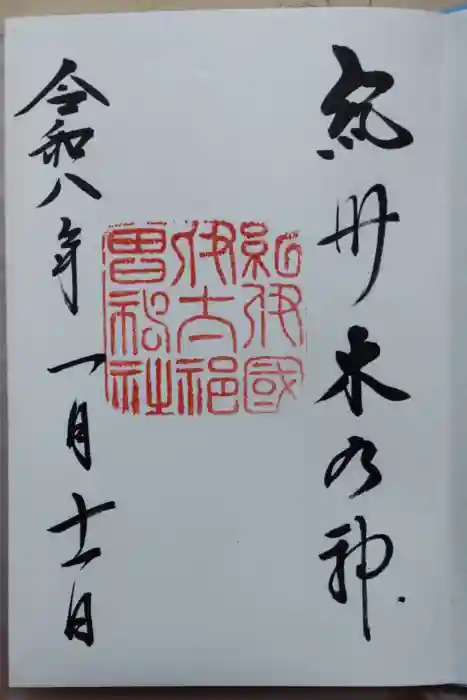 紀州木乃神
紀伊國
伊太祁
曽神社
令和八年一月十一日